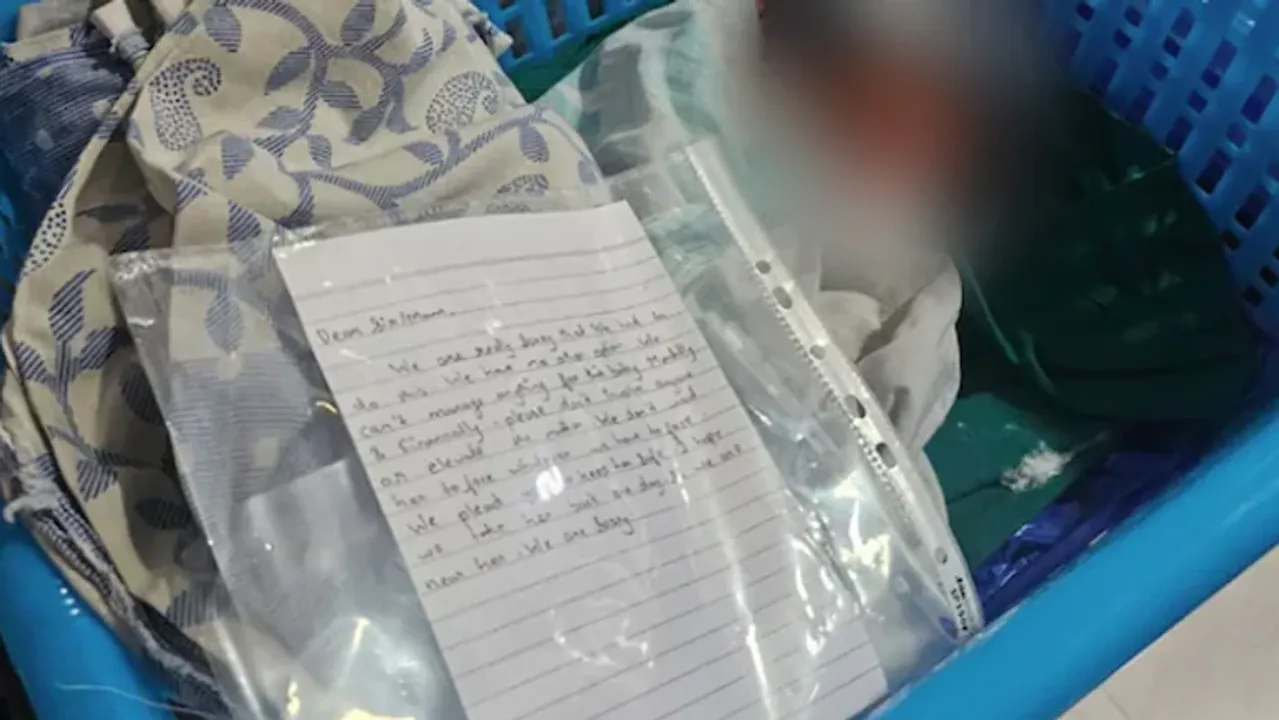 Dear Sir/Mam,
We are really sorry that We had to
do this. We have no other option. We
can't manage anything for this baby. Mentally
& Financially. please don't involve anyone
or elevate the matter. We don't want
her to face whatever we have to face.
We plead keep her safe, I hope
we take her back one day, if we are
near her. We are sorry